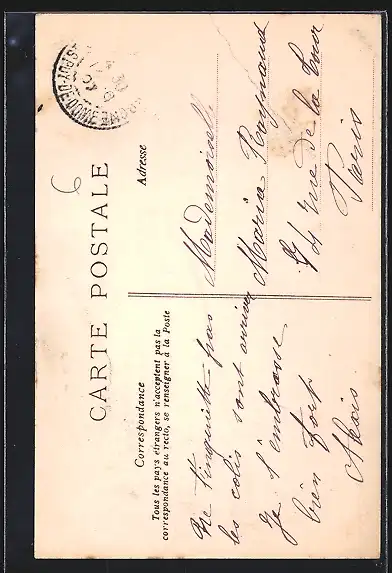 CARTE POSTALE
Correspondance
Tous les pays étrangers n'acceptent pas la
correspondance au recto, se renseigner à la Poste
Ne t'inquiette pas
les colis sont arrivés
Je t'embrasse
bien fort
Alexis
Adresse
Mademoiselle
Maria Raynaud
74 rue de la Tour
Paris
PUY-DE-DOME